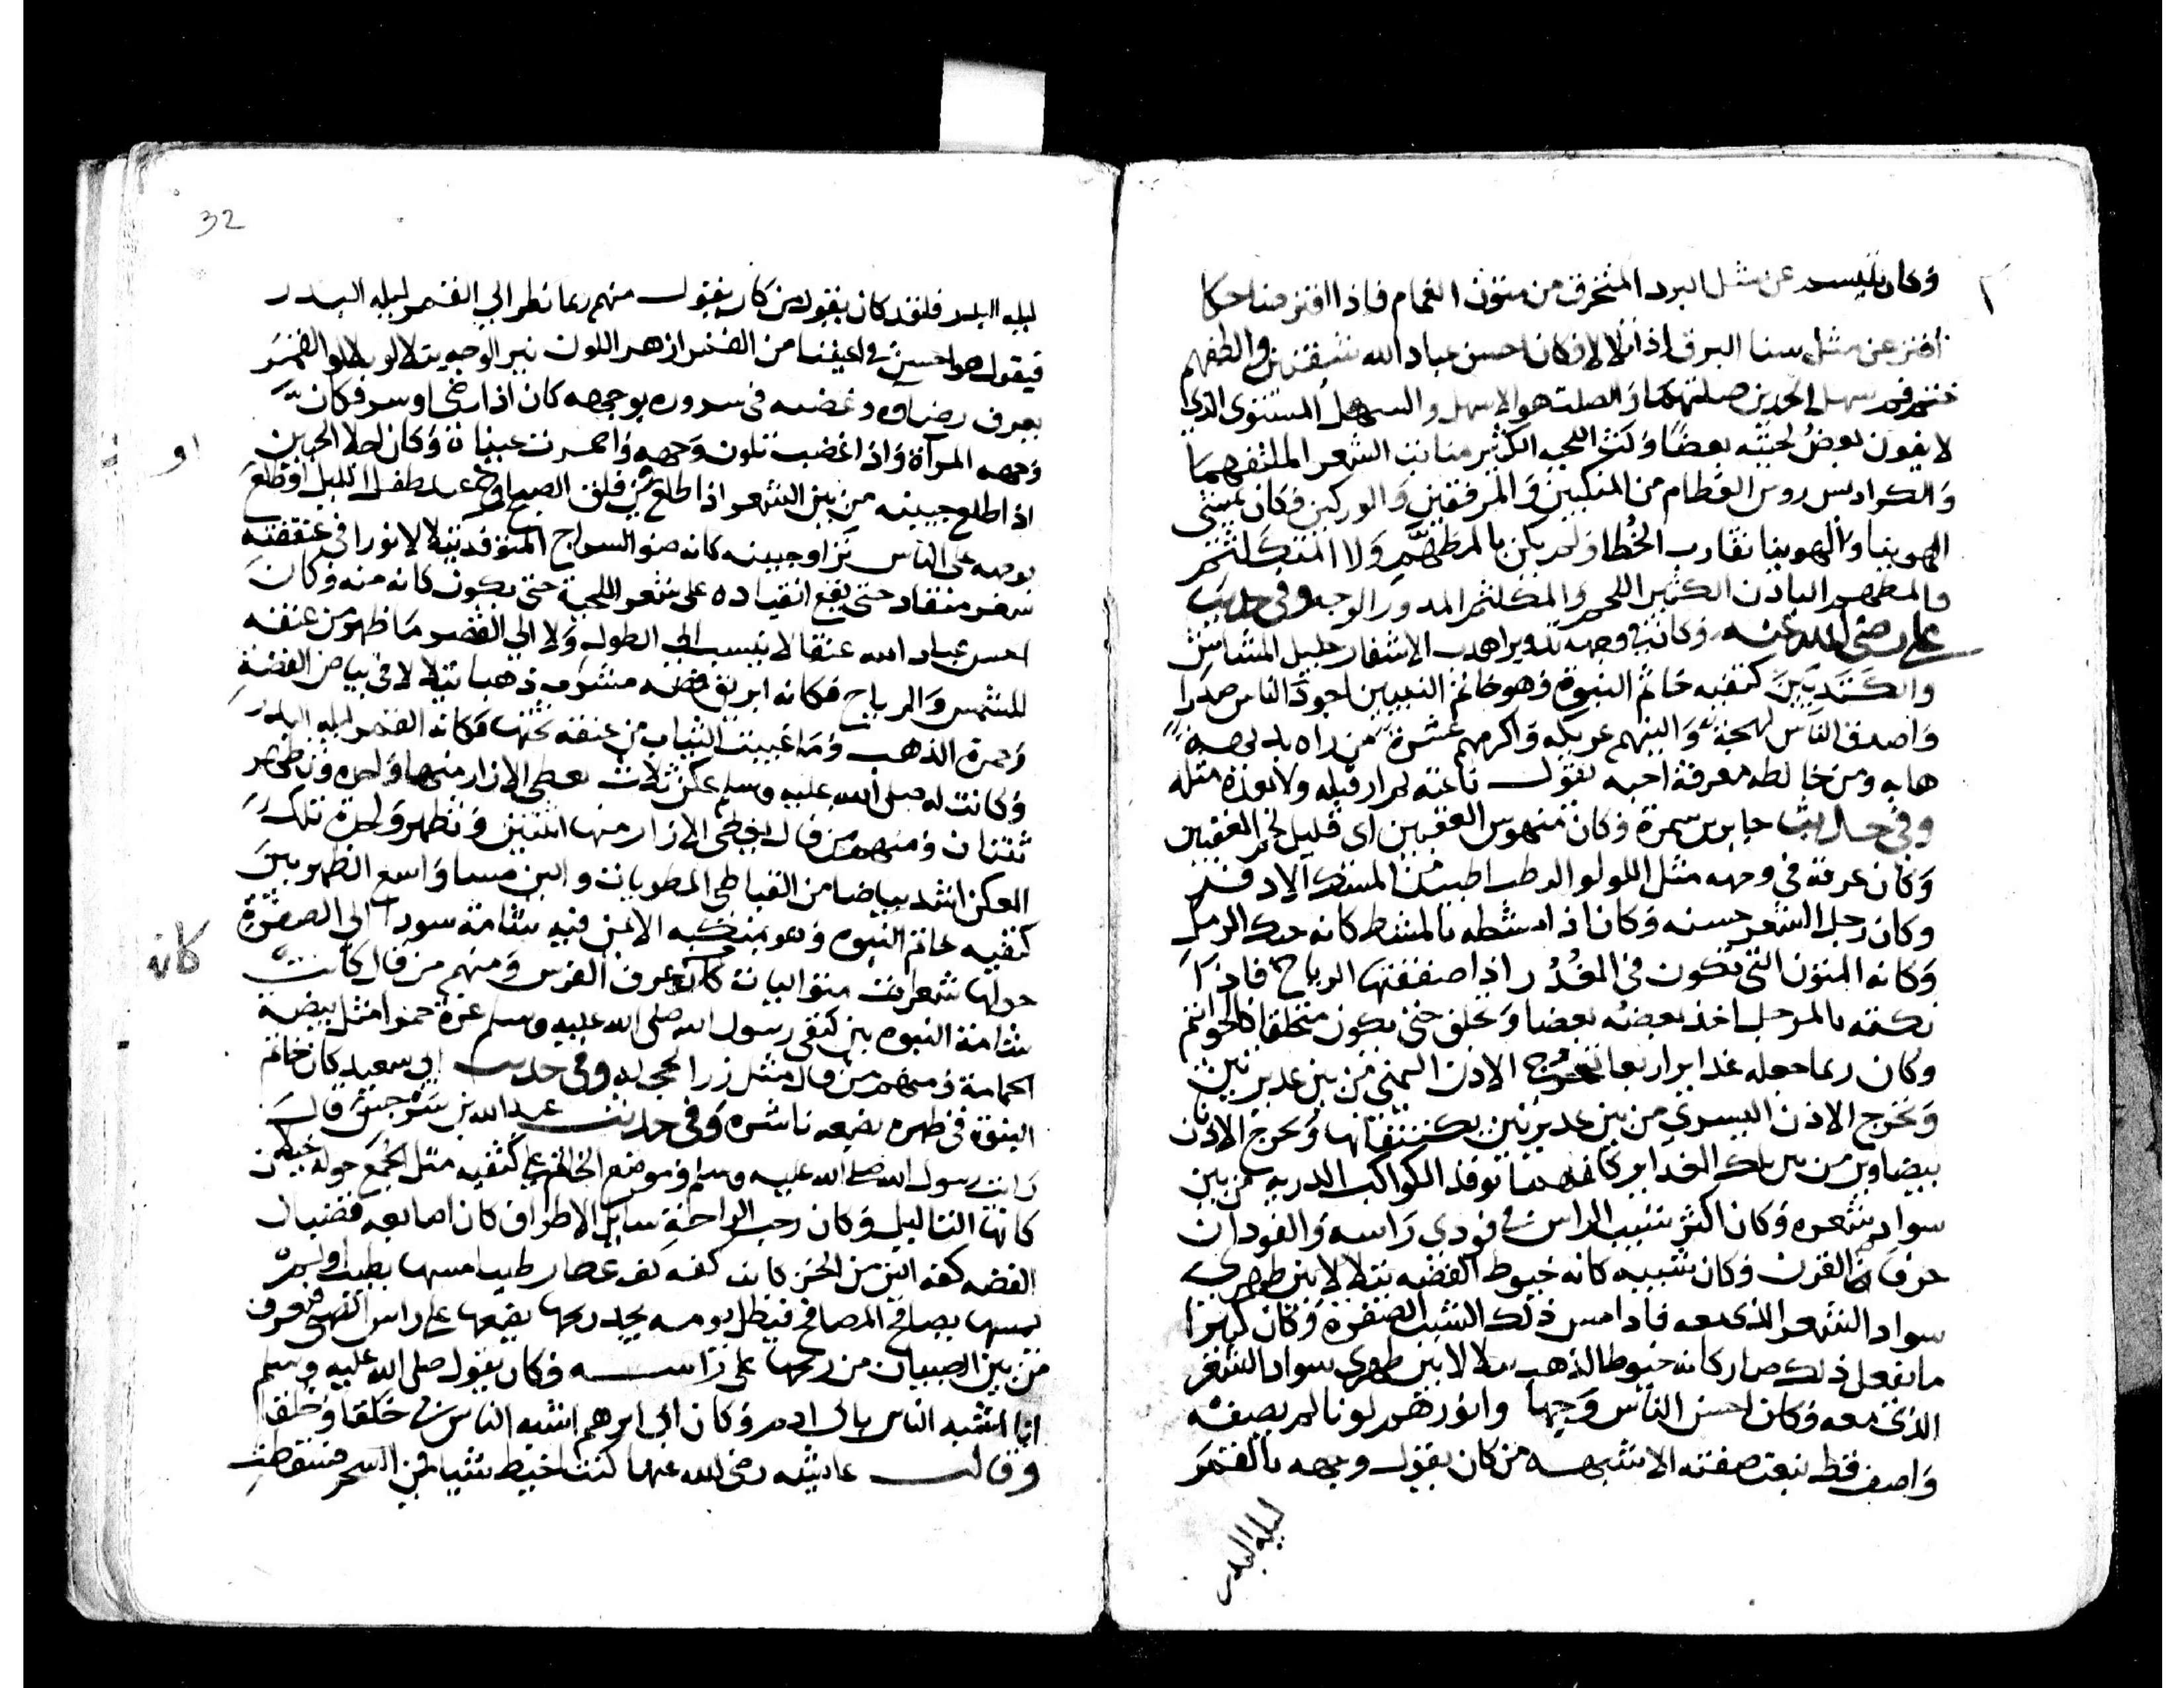 وكان يتبسم عن مثل البرد المنحدر من متون الغمام فاذا افتر ضاحكا
افتر عن مثل سنا البرق اذا تلالا وكان احسن عباد الله شفتين والطفهم
ختم فم سهل الخدين صلتهما والصلت هو الاسهل والسهل المستوى الذي
لا يفوت بعض لحيته بعضا وكث اللحيه الكثير منابت الشعر الملتفهما
والكراديس روس العظام من المنكبين والمرفقين والوركين وكان يمشي
الهوينا والهوينا تقارب الخطا ولم يكن بالمطهم ولا المتكلثم
فالمطهم البادن الكثير اللحم والمكلثم المدور الوجه وفي حديث
على رضى الله عنه وكان في وجهه تدوير اهدب الاشفار جليل المشاش
والكتد بين كتفيه خاتم النبوة وهو خاتم النبيين اجود الناس صدرا
واصدق الناس لهجة والينهم عريكه واكرمهم عشرة من راه بديهه
هابه ومن خالطه معرفة احبه يقول ناعته لم ار قبله ولا بعده مثله
وفي حديث جابر بن سمرة وكان منهوس العقبين اى قليل لحم العقبين
وكان عرقه في وجهه مثل اللولو الرطب اطيب من المسك الاذفر
وكان رجل الشعر حسنه وكان اذا امشطه بالمشط كانه حبك الرمل
وكانه المتون التي تكون في الغدر اذا صفقتها الرياح فاذا
نكته بالمرجل اخذ بعضه بعضا وتحلق حتى يكون متحلقا كالخواتم
وكان ربما جعله غداير اربعا تخرج الاذن اليمنى من بين غديرتين
وتخرج الاذن اليسري من بين غديرتين يكتنفانها وتخرج الاذنان
ببياضهما من بين تلك الغداير كانهما توقد الكواكب الدريه من بين
سواد شعره وكان اكثر شيب الراس في فودي راسه والفودان
حرف القرن وكان شيبه كانه خيوط الفضه يتلالا بين ظهري
سواد الشعر الذي معه فاذا مس ذلك الشيب الصفرة وكان كثيرا
ما يفعل ذلك صار كانه خيوط الذهب يتلالا بين ظهري سواد الشعر
الذي معه وكان احسن الناس وجها وانورهم لونا لم يصفه
واصف قط نبعت صفته الا شبهه من كان يقول وجهه بالقمر
ليلة البدر
32
ليله البدر فلقد كان يقول من كان يقول منهم ربما نظر الي القمر ليله البدر
فيقول هو احسن في اعيننا من القمر ازهر اللون نير الوجه يتلالو تلالو القمر
يعرف رضاه وغضبه في سروره بوجهه كان اذا رضى اوسر فكان
وجهه المرآة واذا غضب تلون وجهه واحمرت عيناه وكان اجلا الجبين
اذا طلع جبينه من بين الشعر اذا طلع في فلق الصبح او عند طفل الليل او طلع
بوجهه على الناس تراوا جبينه كانه ضو السراج المتوقد يتلالا نورا في عنفقته
شعر منقاد حتى يقع انقياده على شعر اللحية حتى يكون كانه منه وكان
احسن عباد الله عنقا لا ينسب الى الطول ولا الي القصر ما ظهر من عنقه
للشمس والرياح فكانه ابريق فضه مشوب ذهبا يتلالا في بياض الفضة
وحمرة الذهب وما غيبت الثياب من عنقه تحتها فكانه القمر ليله البدر
وكانت له صلى الله عليه وسلم عكن ثلاث يغطى الازار منها واحده وتظهر
ثنتان ومنهم من قال يغطي الازار منها اثنتين وتظهر واحدة تلك
العكن اشد بياضا من القباطى المطويات والين مسا واسع الظهر بين
كتفيه خاتم النبوه وهو بمنكبه الايمن فيه شامة سودا الى الصفرة
كانه
حولها شعرات متواليات كانه عرف الفرس ومنهم من قال كانت
شامة النبوه بين كتفي رسول الله صلى الله عليه وسلم غدة حمرا مثل بيضة
الحمامة ومنهم من قال مثل زر الحجله وفي حديث ابي سعيد كان خاتم
النبوة في ظهره بضعه ناشزه وفي حديث عبد الله بن سرجس قال
رايت رسول الله صلى الله عليه وسلم وموضع الخاتم على كتفيه مثل الجمع حوله خيلان
كانها الثاليل وكان رحب الراحة سايل الاطراف كان اصابعه قضبان
الفضه كفه الين من الخز كان كفه كف عطار طيبا مسها بطيب اولم
يمسها يصافح المصافح فيظل يومه يجد ريحها يضعها على راس الصبي فيعرف
من بين الصبيان من ريحها على راسه وكان يقول صلى الله عليه وسلم
انا اشبه الناس بابى ادم وكان ابى ابرهيم اشبه الناس بي خلقا وخلقا
وقالت عايشه رضى الله عنها كنت اخيط ثيابا في السحر فسقطت